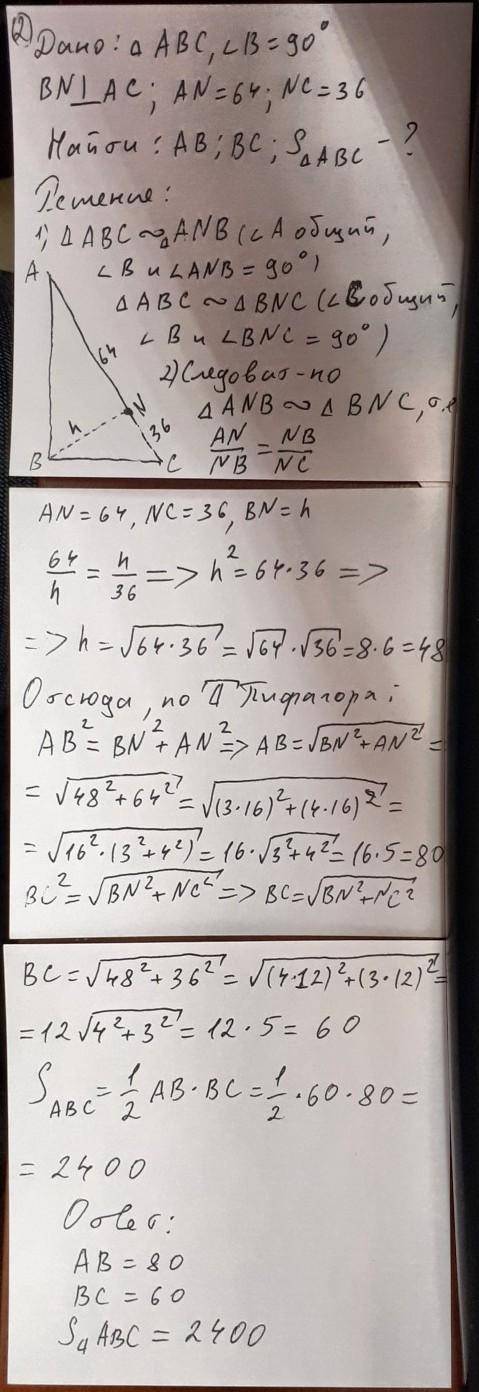 (2) Дано: Δ ABC, ∠B = 90°
BN⊥AC; AN=64; NC=36
Найти: AB; BC; S_ΔABC - ?
Решение:
1) ΔABC ∾ ΔANB (∠A общий,
∠B и ∠ANB = 90°)
ΔABC ∾ ΔBNC (∠C общий,
∠B и ∠BNC = 90°)
2) Следоват-но
ΔANB ∾ ΔBNC, т.е
AN/NB = NB/NC
A
64
N
h
36
B
C
AN=64, NC=36, BN=h
64/h = h/36 => h² = 64·36 =>
=> h = √(64·36) = √64·√36 = 8·6 = 48
Отсюда, по Т Пифагора:
AB² = BN² + AN² => AB = √(BN²+AN²) =
= √(48²+64²) = √((3·16)²+(4·16)²) =
= √(16²·(3²+4²)) = 16·√(3²+4²) = 16·5 = 80
BC² = √(BN²+NC²) => BC = √(BN²+NC²)
BC = √(48²+36²) = √((4·12)²+(3·12)²) =
= 12√(4²+3²) = 12·5 = 60
S_ABC = 1/2 AB·BC = 1/2·60·80 =
= 2400
Ответ:
AB = 80
BC = 60
S_Δ ABC = 2400